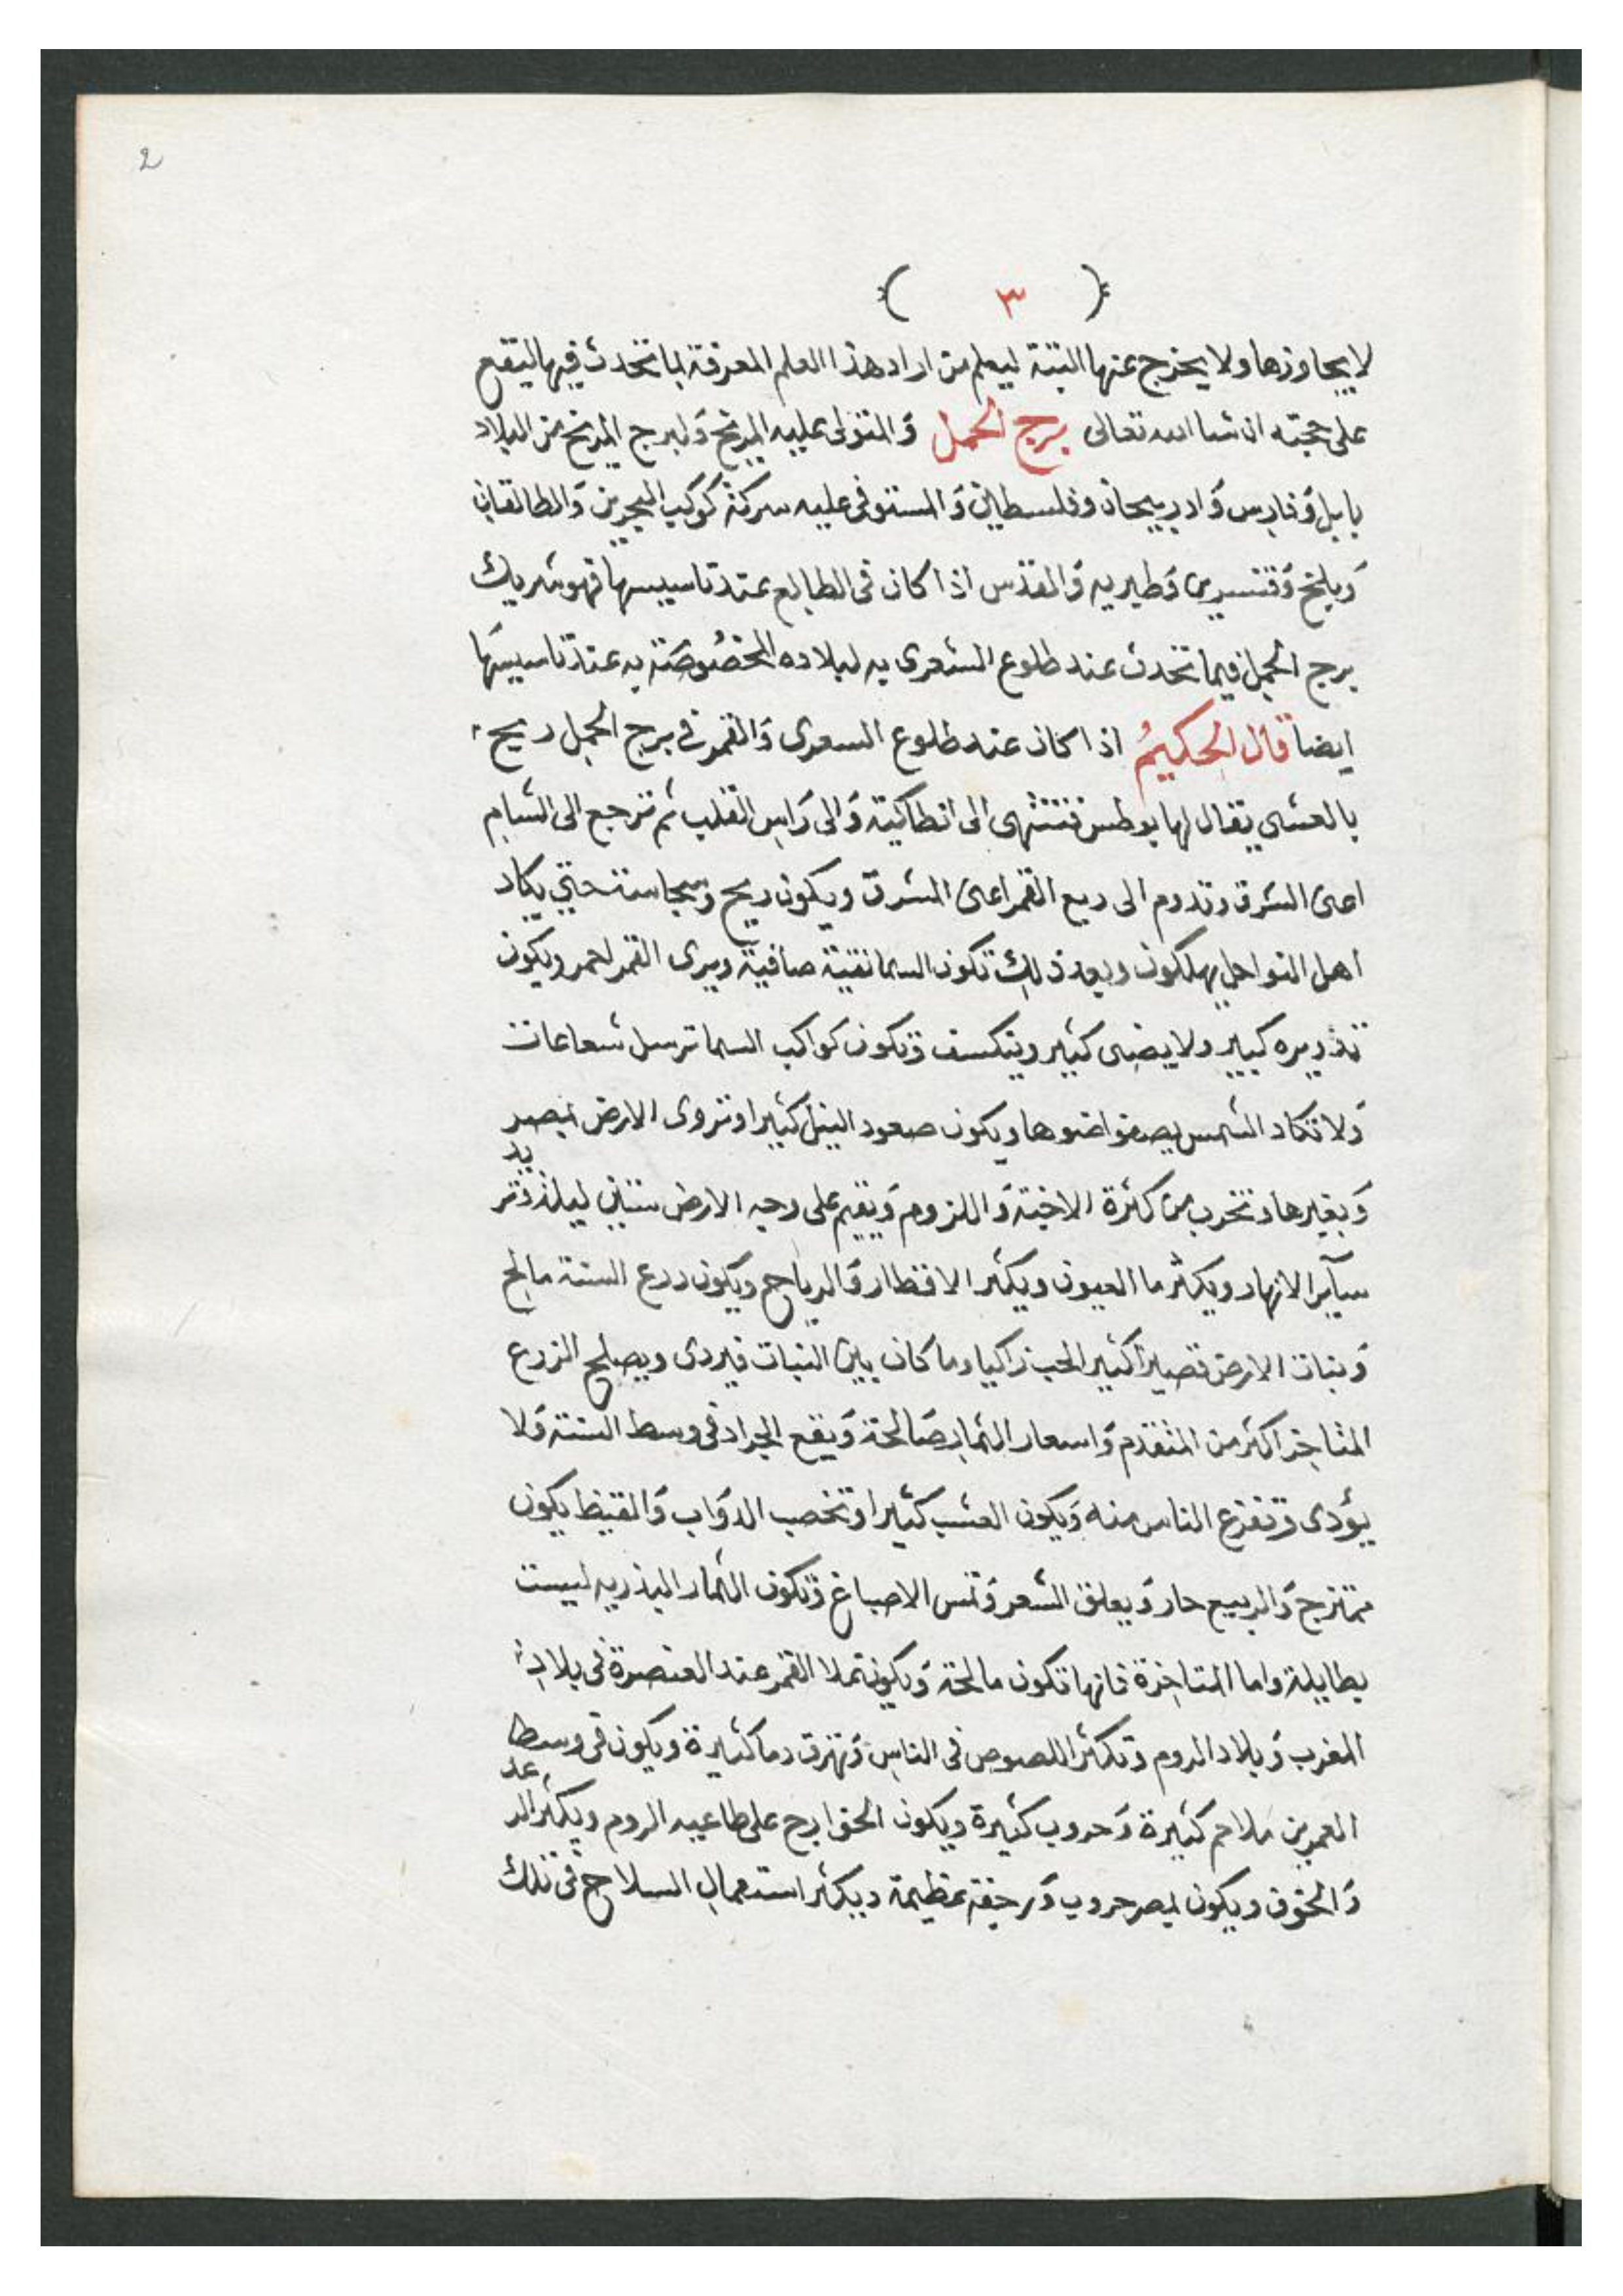 2
( ٣ )
لا يجاوزها ولا يخرج عنها البتة ليعلم من اراد هذا العلم المعرفة بما تحدث فيها ليقع
على حجته ان شا الله تعالى برج الحمل وَالمتولى عليه المريخ وَلبرج المريخ من البلاد
بابل وَفارس وَادربيجان وفلسطين وَالمستوفى عليه سركة كوكب البحرين وَالطالقان
وَبلخ وَقنسرين وَطبريه وَالمقدس اذا كان فى الطالع عند تاسيسها فهو شريك
برج الحمل فيما تحدث عند طلوع الشعرى به لبلاده المخصُوصَة به عند تاسيسهَا
ايضا قال الحكيمُ اذا كان عند طلوع السعرى وَالقمر فى برج الحمل ريح
بالعشى يقال لها بوطس فتنتهى الى انطاكية وَالى رَاس القلب ثم ترجع الى الشام
اعنى الشرق وتدوم الى ربع القمر اعنى المشرق ويكون ريح وسجاسة حتى يكاد
اهل النواحل يهلكون وبعد ذلك تكون السما نقية صافية ويرى القمر احمر ويكون
تذويره كبير ولا يضى كثير وينكسف وَتكون كواكب السما ترسل شعاعات
وَلا تكاد الشمس يصفوا ضوها ويكون صعود النيل كثيرا وتروى الارض بمصر
وَبغيرها وتخرب من كثرة الاخبة وَاللزوم وَيقيم على وجه الارض ستين ليلة وتزيد
سآير الانهار ويكثر ما العيون ويكثر الاقطار وَالرياح ويكون زرع السنة مالح
وَنبات الارض قصيرا كثير الحب زاكيا وما كان بين النبات فيردى ويصلح الزرع
المتاخر اكثر من المتقدم وَاسعار الثمار صَالحة وَيقع الجراد فى وسط السنة وَلا
يؤدى وَتفزع الناس منه وَيكون العشب كثيرا وَتخصب الدوَاب وَالقيظ يكون
ممتزج وَالربيع حار وَيعلق الشعر وَتنس الاصباغ وَتكون الثمار البدريه ليست
بطايلة واما المتاخرة فانها تكون مالحة وَيكون تملا القمر عند العنصرة فى بلاد
المغرب وَبلاد الروم وَتكثر اللصوص فى الناس وَتهرق دما كثيرة ويكون فى وسط
العمرين ملاحم كثيرة وَحروب كثيرة ويكون الخوارج على طاعيه الروم ويكثر الرعد
وَالخوف ويكون بمصر حروب وَرجفة عظيمة ويكثر استعمال السلاح فى تلك